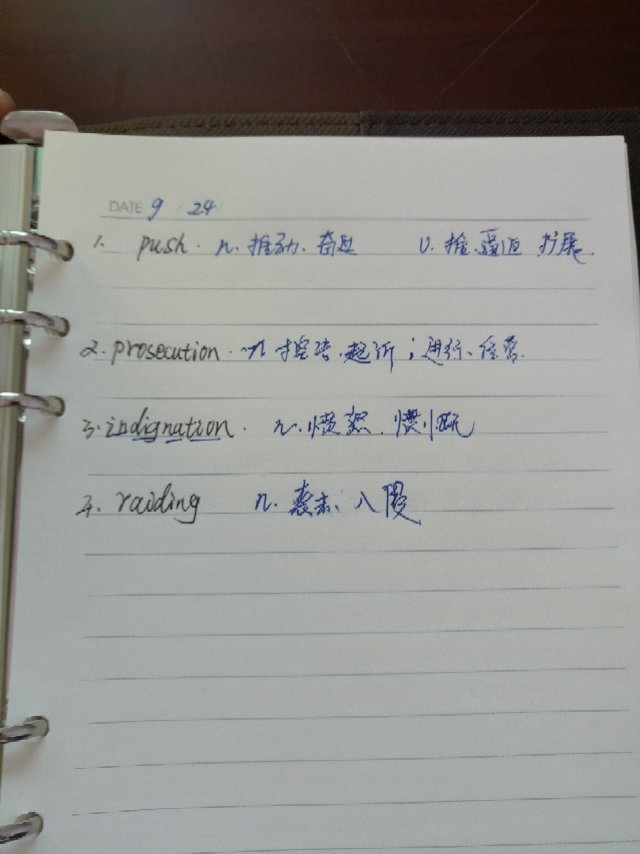 DATE 9 / 24
1. push. n. 推动. 奋进 v. 推. 逼迫 扩展.
2. prosecution. n 控告. 起诉; 进行、经营.
3. indignation. n. 愤怒. 愤慨
4. raiding n. 袭击. 入侵